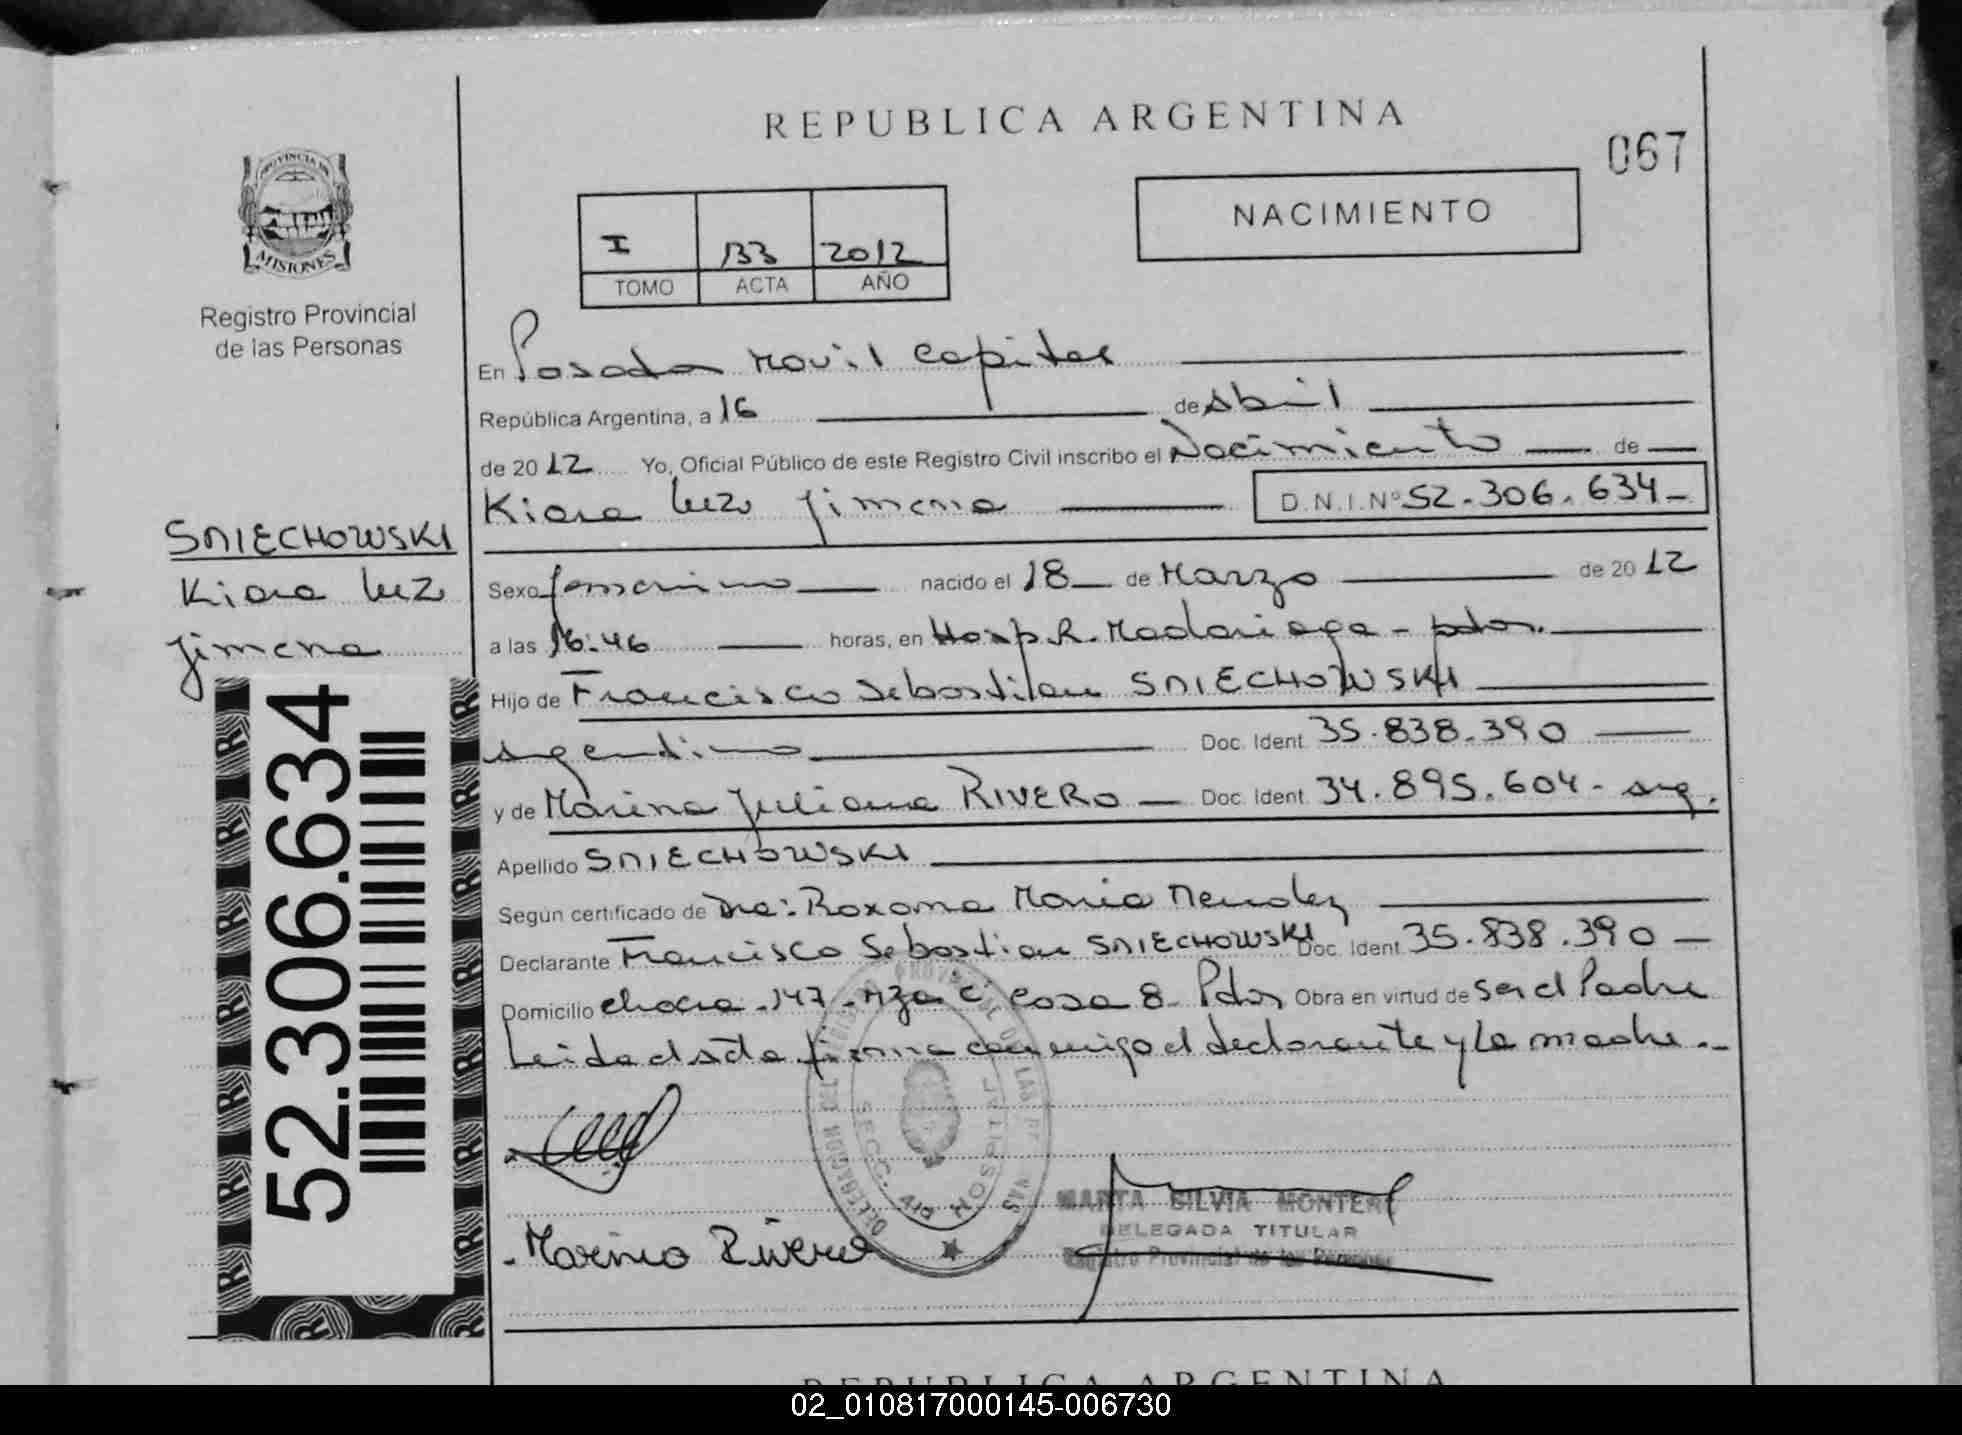 REPUBLICA ARGENTINA
067
PROVINCIA DE
MISIONES
Registro Provincial
de las Personas
NACIMIENTO
I 133 2012
TOMO ACTA AÑO
En Posadas Movil Capital
República Argentina, a 16 de Abril
de 2012 Yo, Oficial Público de este Registro Civil inscribo el Nacimiento de
Kiara Luz Jimena D.N.I.Nº 52.306.634
SNIECHOWSKI
Kiara Luz
Jimena
Sexo femenino nacido el 18 de Marzo de 2012
a las 16:46 horas, en Hosp. R. Madariaga - pdas.
Hijo de Francisco Sebastian SNIECHOWSKI
argentino Doc. Ident. 35.838.390
y de Marina Juliana RIVERO Doc. Ident. 34.895.604 - arg.
Apellido SNIECHOWSKI
Según certificado de Dra: Roxana Maria Mendez
Declarante Francisco Sebastian SNIECHOWSKI Doc. Ident. 35.838.390
Domicilio chacra 147 - Mza C casa 8 Pdas Obra en virtud de ser el Padre
Leida el acta firma conmigo el declarante y la madre
52.306.634
DELEGACION DEL REGISTRO PROVINCIAL DE LAS PERSONAS
SECC. 4ta HOSPITAL
MARTA SILVIA MONTERO
DELEGADA TITULAR
Registro Provincial de las Personas
Marina Rivero
REPUBLICA ARGENTINA
02_010817000145-006730